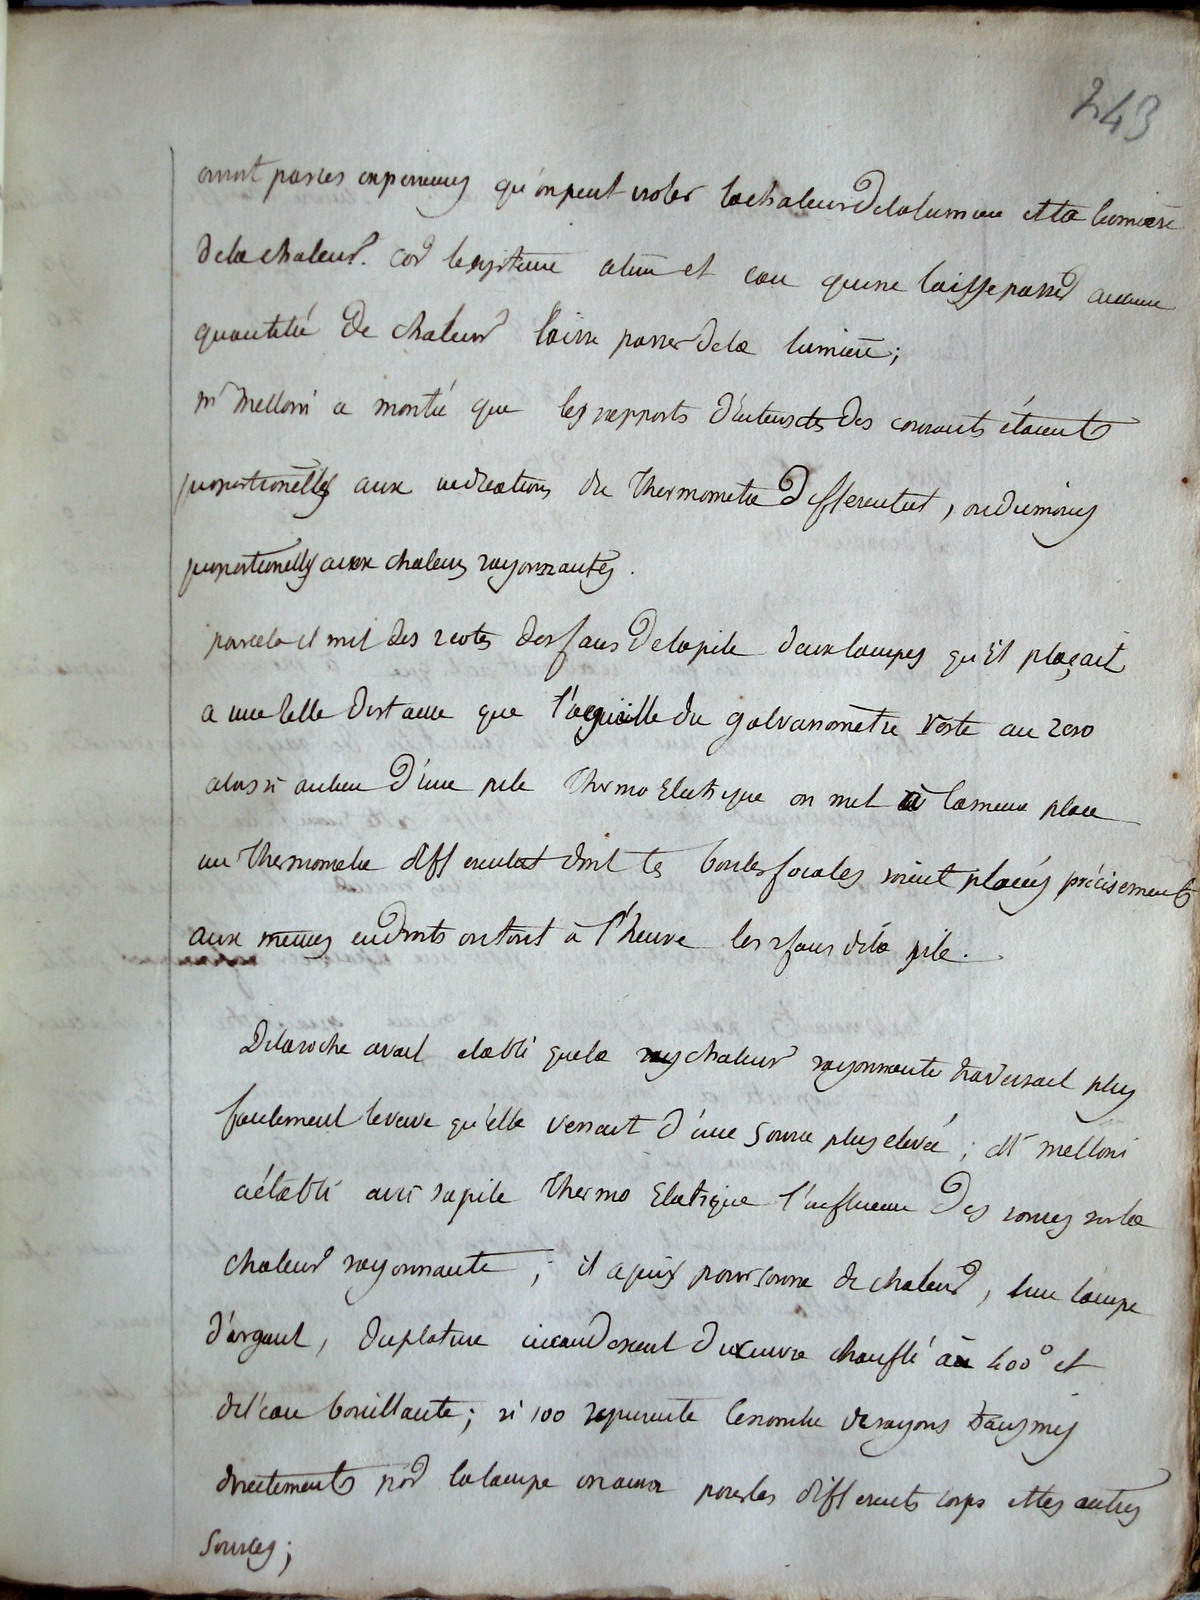 243
avont par ces experiences qu'on peut isoler la chaleur de la lumiere et la lumiere
de la chaleur. car le systeme alun et eau qui ne laisse passer aucune
quantité de chaleur laisse passer de la lumiere;
mr Melloni a montré que les rapports d'intensités des courants étaient
proportionelles aux indications du thermometre differentiel, ou du moins
proportionelles aux chaleurs rayonnantes.
par cela il mit des 2 cotés des faces de la pile deux lampes qu'il plaçait
a une telle distance que l'aeguille du galvanomètre reste au zero
alors si au lieu d'une pile thermo Electrique on met à la meme place
un thermometre differentiel dont les boules focales soient placées précisement
aux mêmes endroits ou tout à l'heure les 2 faces de la pile.
Delaroche avait etabli que la chaleur rayonnante traversait plus
facilement le verre qu'elle venait d'une source plus elevée; Mr melloni
a établi avec sa pile thermo Electrique l'influence des sources sur la
chaleur rayonnante; il a pris pour source de chaleur, une lampe
d'argant, du platine incandescent du cuivre chauffé à 400° et
de l'eau bouillante; si 100 represente le nombre de rayons transmis
directement par la lampe on aura pour les differents corps et les autres
sources;